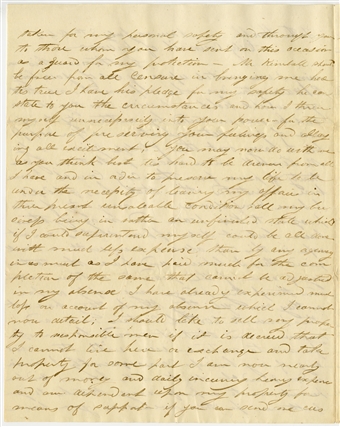 taken for my personal safety and through you
to those whom you have sent on this occasion
as a guard for my protection — Mr Kimball
be free from all censure in bringing me here
time I have his pledge for my safety he can
state to you the circumstances and how I threw
myself unreservedly into your power for the
purpose of preserving your feelings and allay
ing all excitement. You may now do with me
as you think best its hard to be driven from all
I have and in order to preserve my life to be
under the necessity of leaving my affairs in
their present unsaleable condition all my bu
siness being in rather an unfinished state which
if I could superintend myself could be all done
with much less expense than by any agency
in as much as I have paid much for the com
pletion of the same that cannot be adjusted
in my absence I have already experienced much
loss on account of my absence which I cannot
now detail; I should like to sell my prope
rty to responsible men if it is decreed that
I cannot live here or exchange and take
property for some part I am now nearly
out of money and daily incurring heavy expense
and am dependent upon my property for
means of support if you can send me